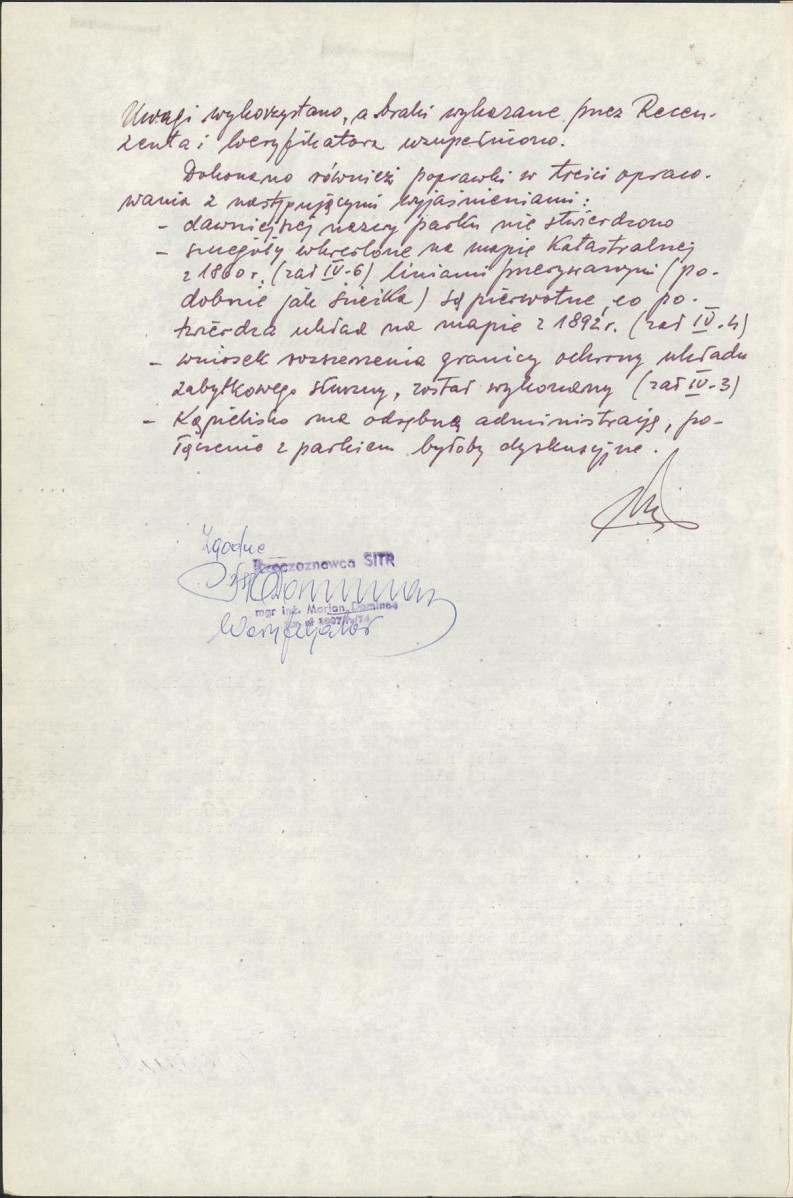 Uwagi wykorzystano, a braki wykazane przez Recen-
zenta i Weryfikatora uzupełniono.
Dokonano również poprawki w treści opraco-
wania z następującymi wyjaśnieniami:
- dawniejszej nazwy parku nie stwierdzono
- szczegóły wkreślone na mapie katastralnej
z 1860 r. (zał IV-6) liniami przerywanymi (po-
dobnie jak ścieżka) są pierwotne, co po-
twierdza układ na mapie z 1892 r. (zał IV-4)
- wniosek rozszerzenia granicy ochrony układu
zabytkowego słuszny, został wykonany (zał IV-3)
- Kąpielisko ma odrębną administrację, po-
łączenie z parkiem byłoby dyskusyjne.
Zgodne
Rzeczoznawca SITR
mgr inż. Marian Dominas
Weryfikator